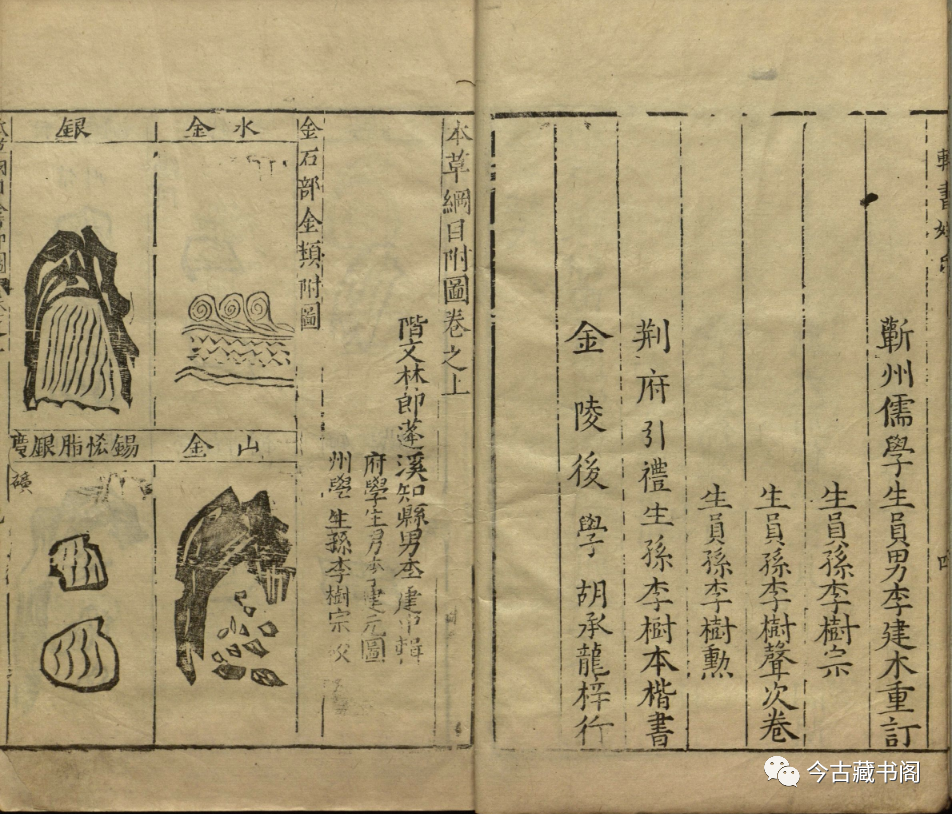 輯書姓氏
四
蘄州儒學生員男李建木重訂
生員孫李樹宗
生員孫李樹聲次卷
生員孫李樹勳
荆府引禮生孫李樹本楷書
金陵後學胡承龍梓行
本草綱目附圖卷之上
階文林郎蓬溪知縣男李建中輯
府學生男李建元圖
州學生孫李樹宗校
金石部金類附圖
水金
銀
山金
錫恡脂銀廣
今古藏书阁